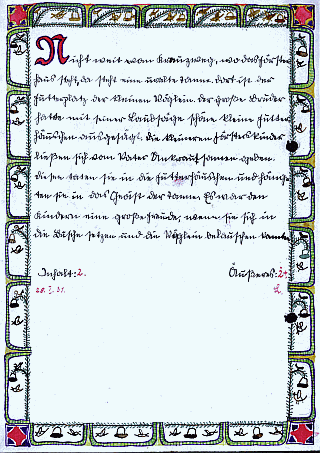 Nicht weit vom Kreuzweg, wo das Förster
haus steht, da steht eine uralte Tanne. Dort ist der
Futterplatz der kleinen Vöglein. Der große Bruder
hatte mit seiner Laubsäge schöne kleine Futter
häuschen ausgesägt. Die kleineren Försterskinder
ließen sich vom Vater Unkrautsamen geben.
Diesen taten sie in die Futterhäuschen und häng
ten sie in das Geäst der Tanne. Es war den
Kindern eine große Freude, wenn sie sich in
die Büsche setzen und die Vöglein belauschen konnten.
Inhalt: 2. Äußeres: 2+
28. I. 51.